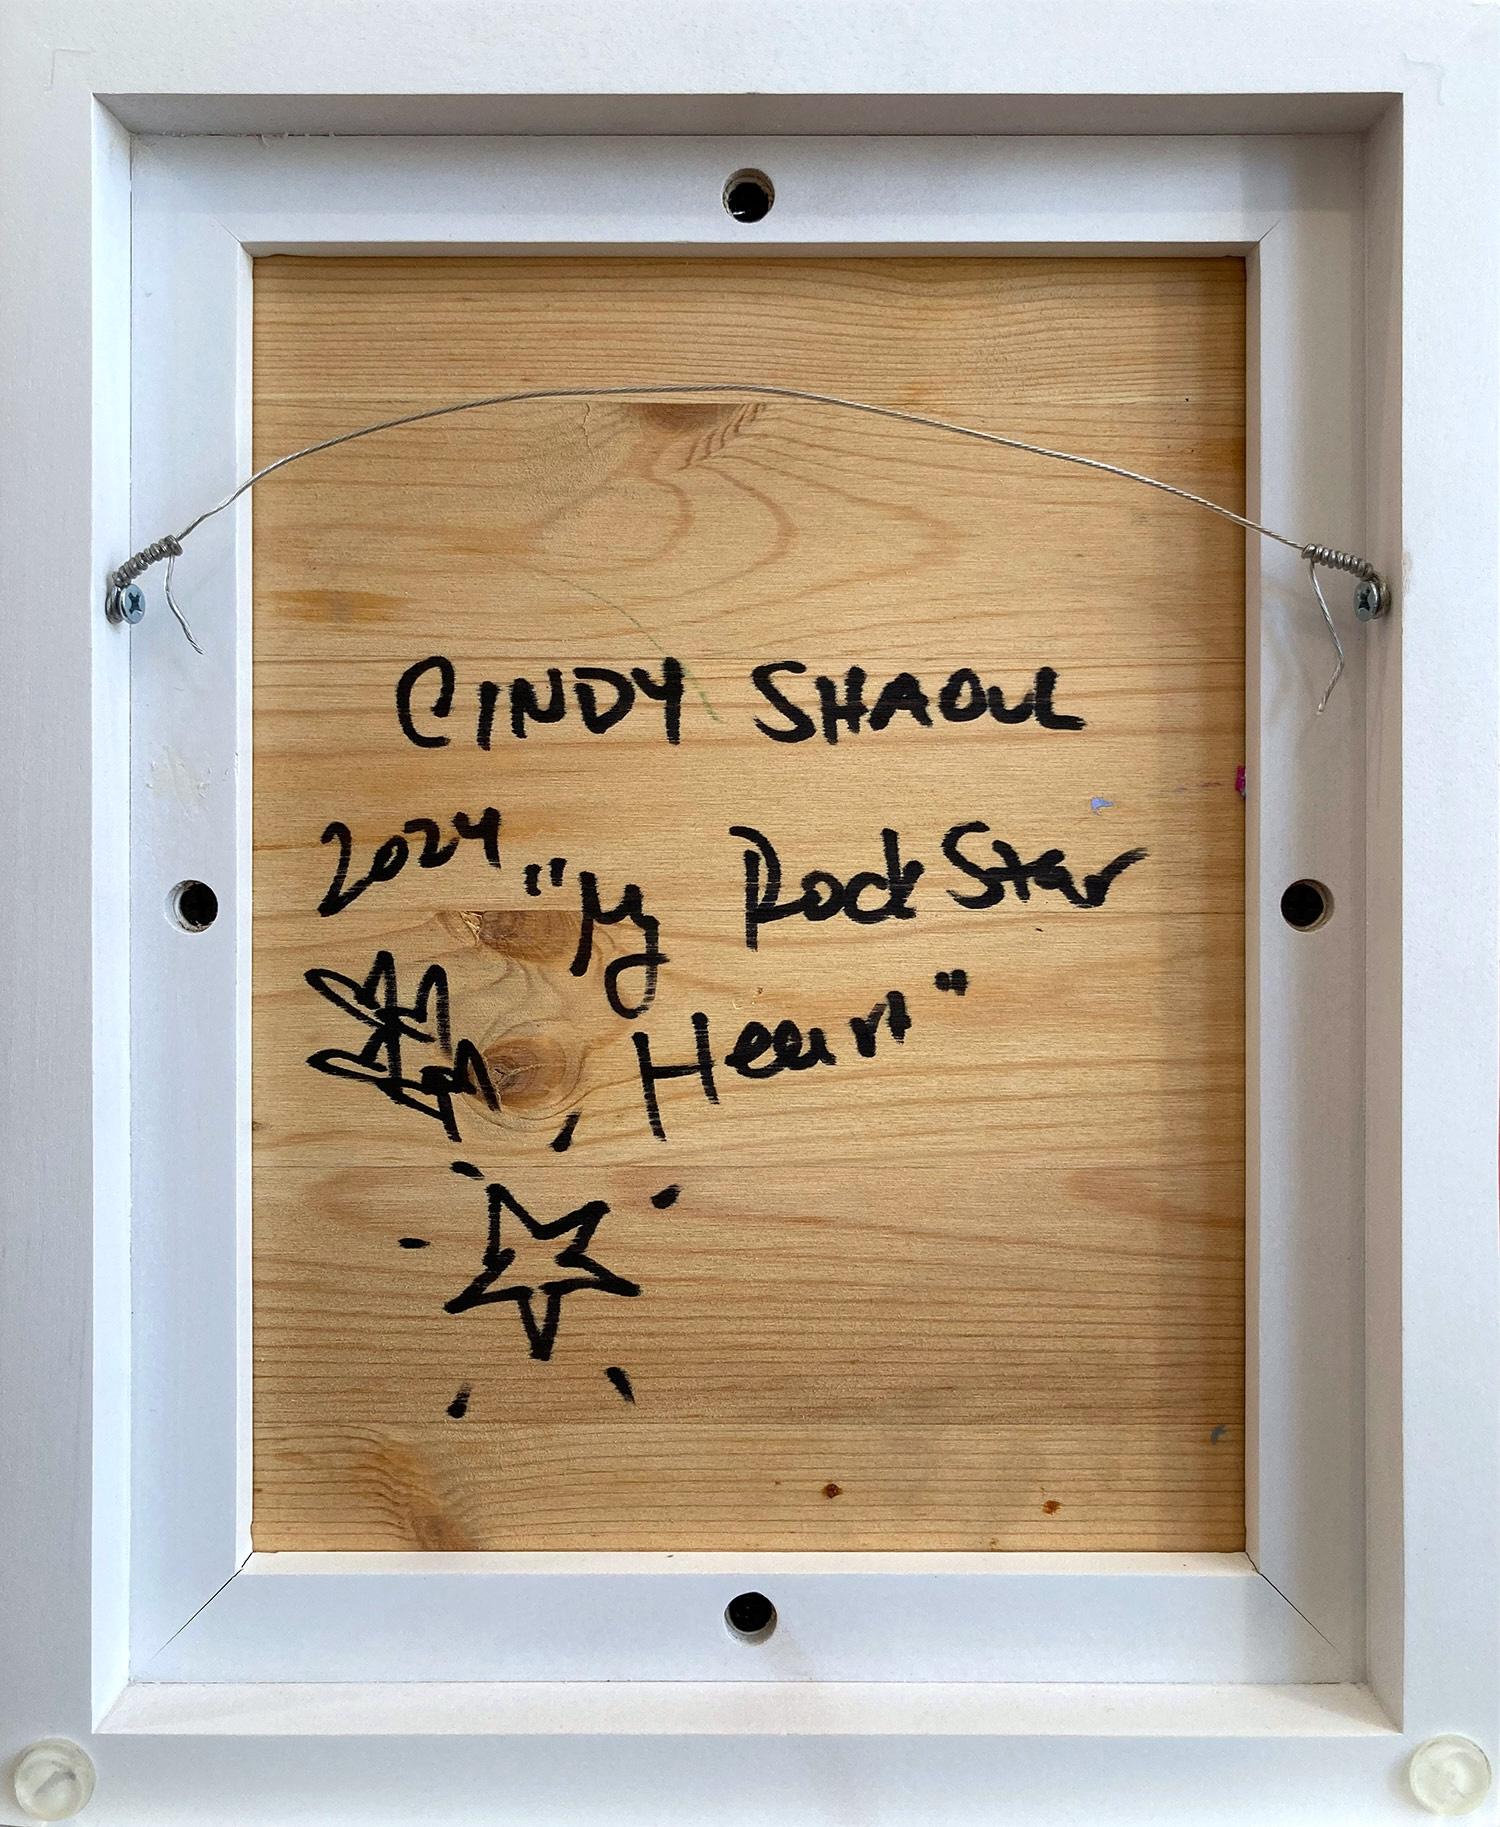 CINDY SHAOUL
2024 "My Rock Star
Heart"